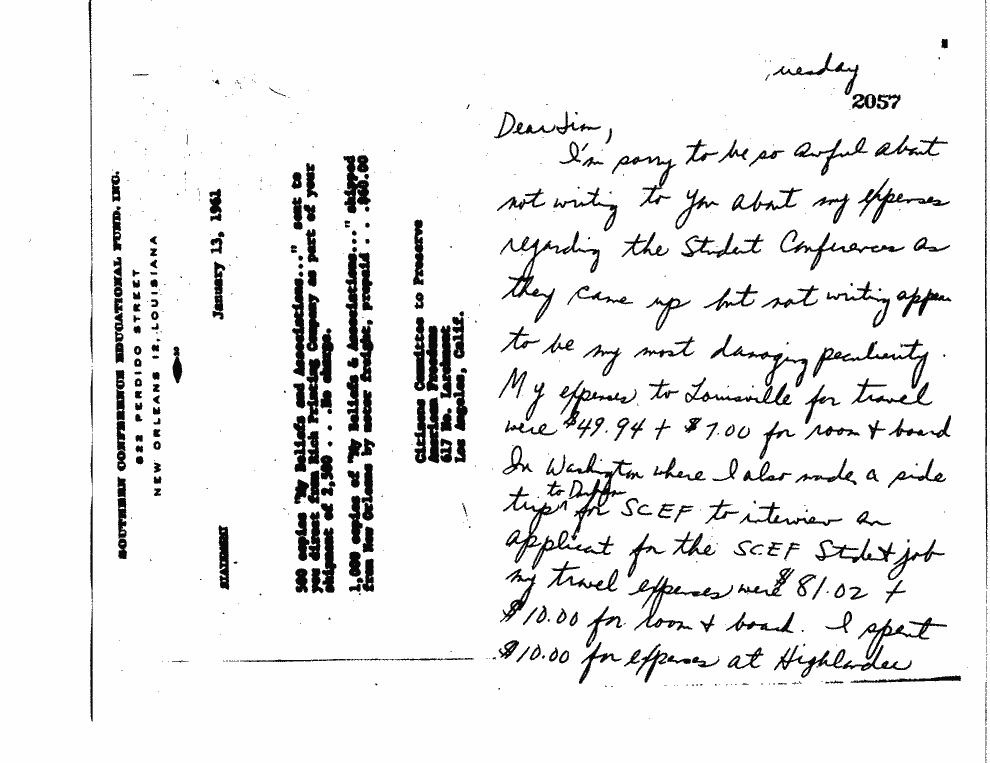 SOUTHERN CONFERENCE EDUCATIONAL FUND, INC.
822 PERDIDO STREET
NEW ORLEANS 12, LOUISIANA
January 13, 1961
STATEMENT
500 copies "My Beliefs and Associations..." sent to
you direct from Rich Printing Company as part of your
shipment of 2,500 . . . No charge.
1,000 copies of "My Beliefs & Associations..." shipped
from New Orleans by motor freight, prepaid . . . $60.00
Citizens Committee to Preserve
American Freedoms
617 No. Larchmont
Los Angeles, Calif.
uesday
2057
Dear Jim,
I'm sorry to be so awful about
not writing to you about my expenses
regarding the Student Conferences as
they came up but not writing appear
to be my most damaging peculiarity.
My expenses to Louisville for travel
were $49.94 + $7.00 for room + board
In Washington where I also made a side
to
trip for SCEF to interview an
applicant for the SCEF Student job
my travel expenses were $81.02 +
$10.00 for room + board. I spent
$10.00 for expenses at Highlander